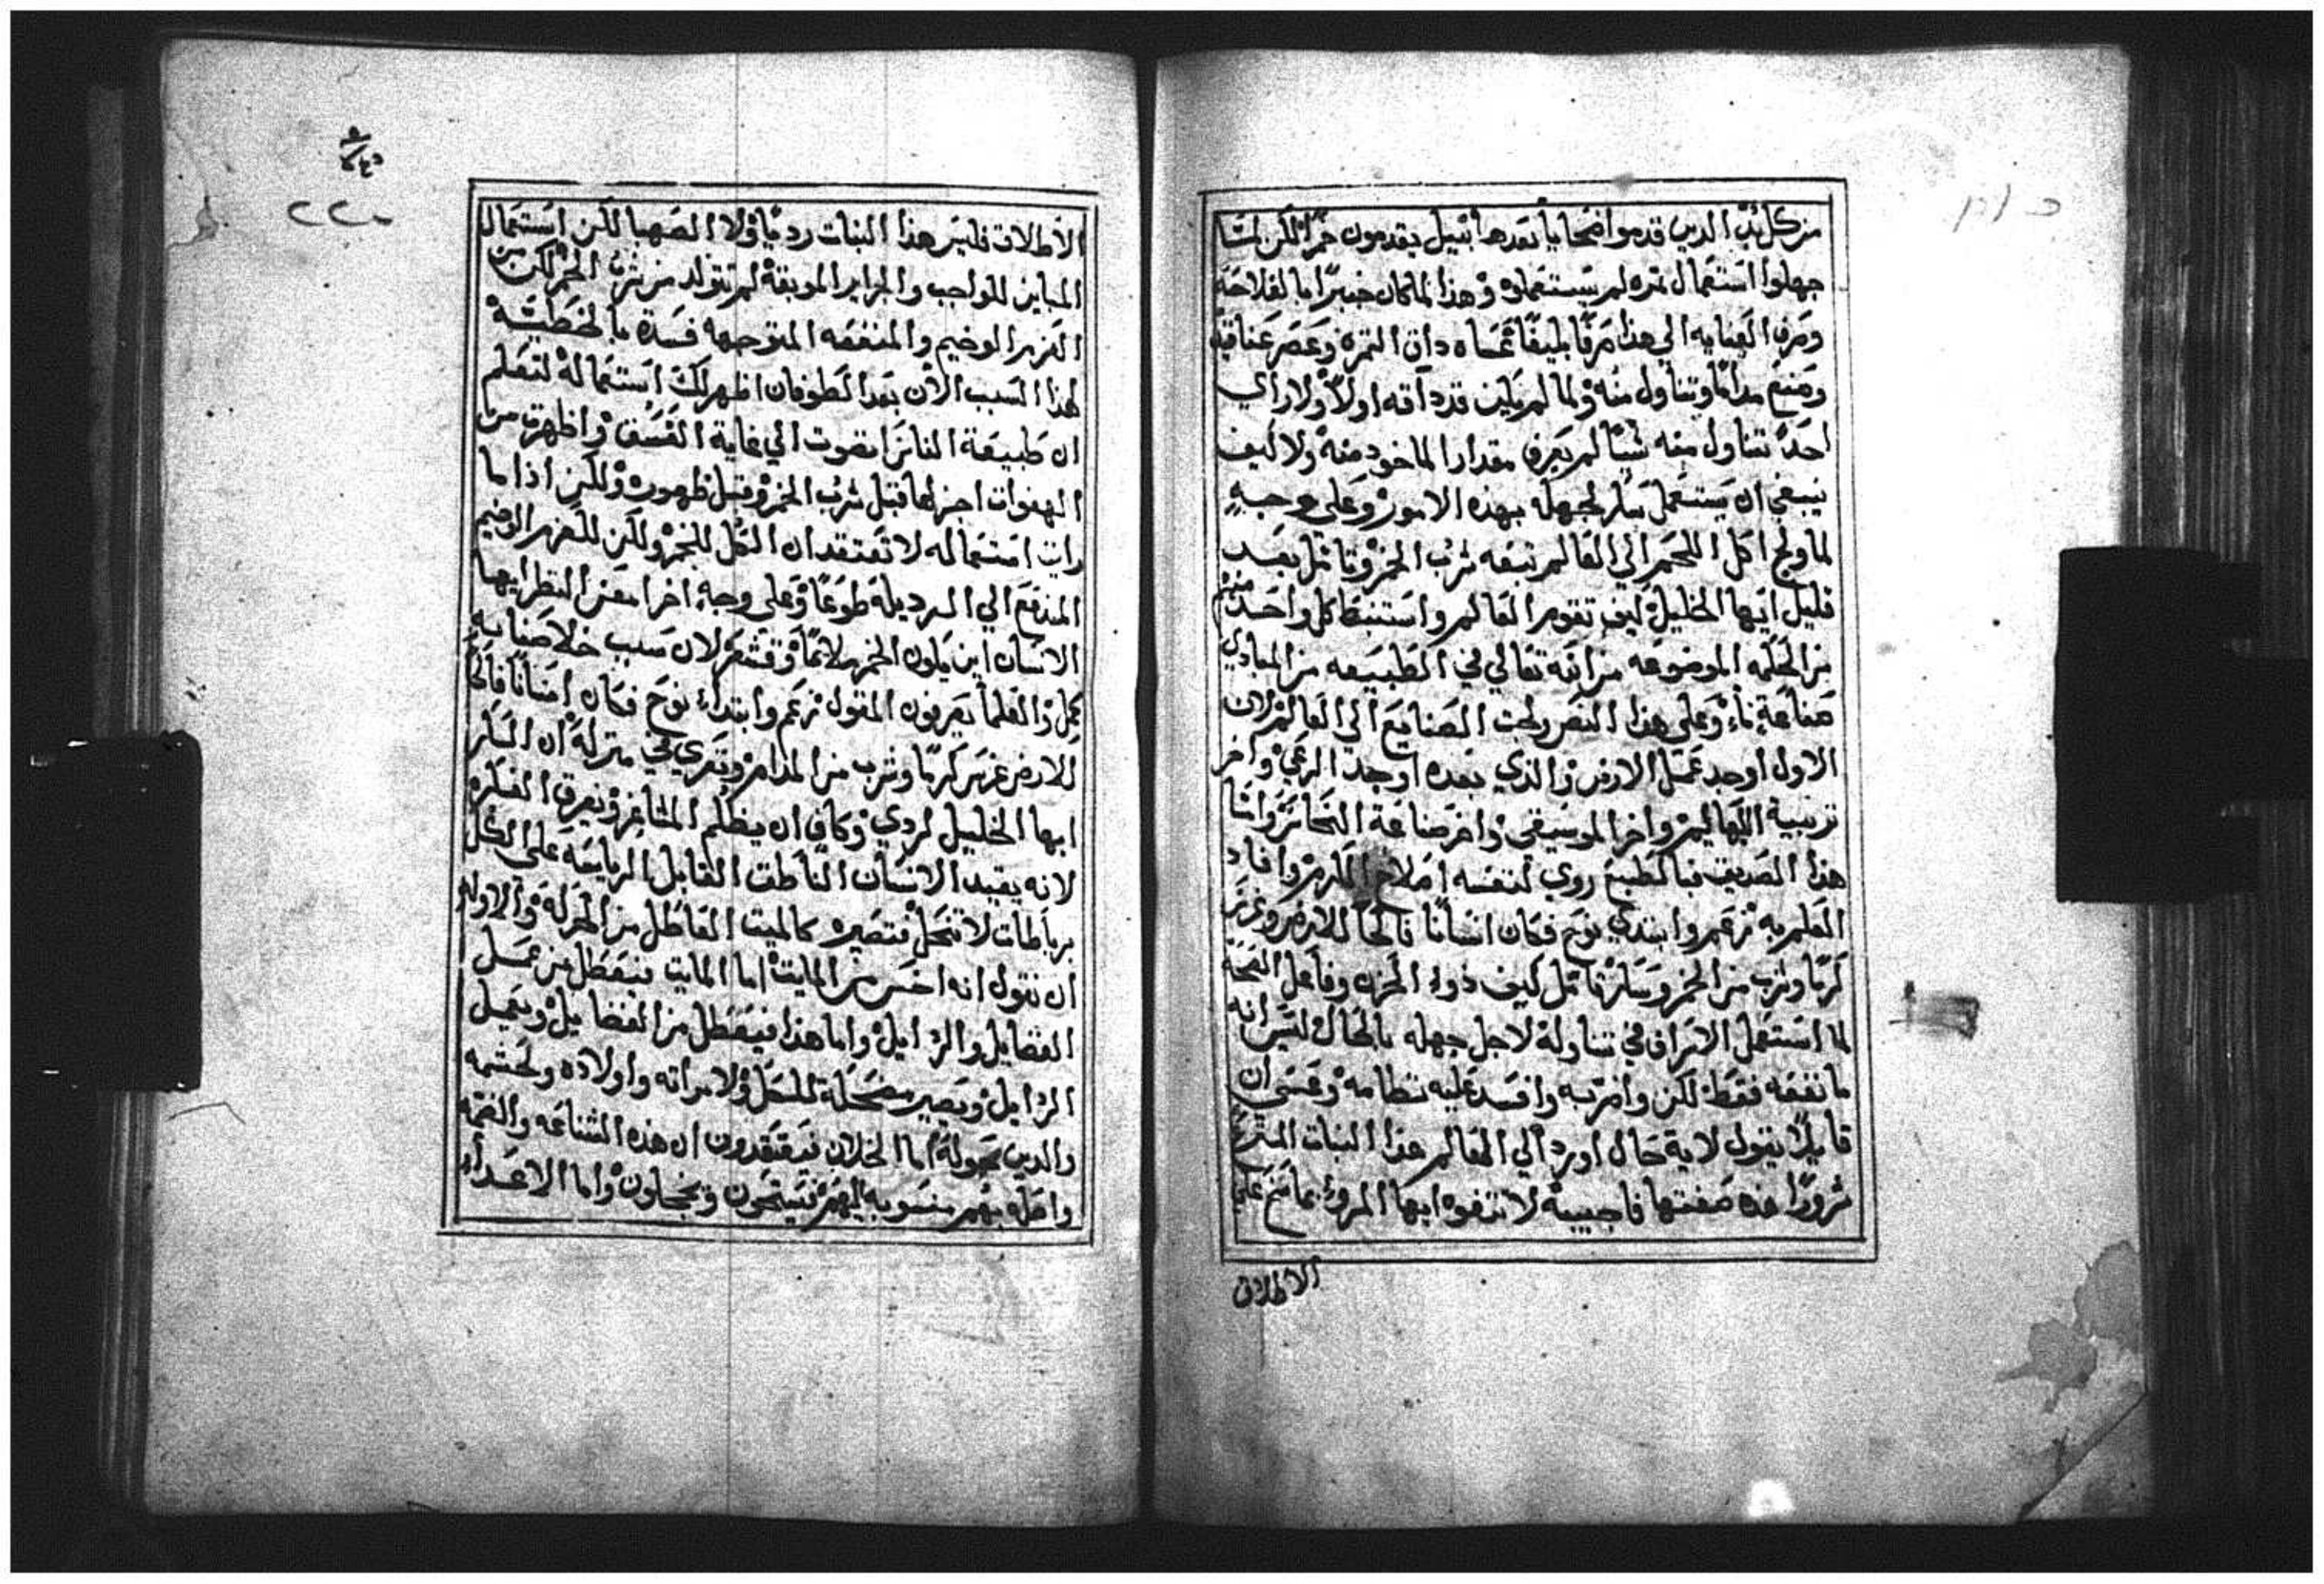 من كل نبت الدين قدموا ضحايا بعدها بتيل يقدمون خمرا لكن لما
جهلوا استعمال ثمره لم يستعملوه وهذا لما كان خبيرا بالفلاحه
وصرف العنايه الي هذا صرفا بليغا عساه داق الثمره وعصر عناقيد
وصنع مداما وتناول منه ولما لم يكن قد داقه اولا ولا راي
احد تناول منه شيا لم يعرف مقدار الماخود منه ولا كيف
ينبغي ان يستعمل سكر لجهله بهذه الامور وعلي وجه
لما ولج اكل اللحم الي العالم تبعه شرب الخمر وتامل بعد
قليل ايها الخليل كيف تقوم العالم واستنبط كل واحد منهم
من الحكمه الموضوعه من الله تعالي في الطبيعه من المبادي
صناعة ما وعلي هذا النص ولجت الصنايع الي العالم لان
الاول اوجد عمل الارض والذي بعده اوجد الرعي واخر
تربية البهايم واخر الموسيقي واخر صناعة النحاس واما
هذا الصديق فبالطبع روي لنفسه اصلاح الكرم وافاد
العلم به زعم وابتدي نوح فكان انسانا فالحا للارض وغرس
كرما وشرب من الخمر وسكر تامل كيف دواء الحزن وفاعل الصحه
لما استعمل الاسراف في تناوله لاجل جهله بالحال ليس انه
ما نفعه فقط لكن واضر به وافسد عليه نظامه وعسي ان
قايلا يقول لاية حال اورد الي العالم هذا النبات المترع
شرورا هذه صفتها فاجيبه لا تتفوه ايها المرو بما سنح علي
الاطلاق
٢٢٠
الاطلاق فليس هذا النبات رديا ولا الصهبا لكن استعمال
المباين للواجب والجراير الموبقة لم تتولد من شرب الخمر لكن من
العزم الوخيم والمنفعه المتوجهه فسدة بالخطيئه
لهذا السبب الان بعد الطوفان اظهر لك استعماله لتعلم
ان طبيعة الناس انصوت الي غاية الفسق واظهرت من
الهفوات اجزلها قبل شرب الخمر وقبل ظهوره ولكن اذا ما
رايت استعماله لا تعتقد ان الكل للخمر ولكن للعزم الوخيم
المندفع الي الرديله طوعا وعلي وجه اخر امعن النظر ايها
الانسان اين يكون الخمر ملايما وقشعر لان سبب خلاصنا به
يكمل والعلما يعرفون المقول زعم وابتداء نوح فكان انسانا فالحا
للارض غرس كرما وشرب من المدام وتعري في منزله ان السكر
ايها الخليل لردي وكاف ان يظلم المشاعر ويعرق الفكره
لانه يقيد الانسان الناطق القابل الرياسه علي الكل
برباطات لا تنحل فتصيره كالميت العاطل من الحركه والاولي
ان نقول انه اخس من المايت اما المايت فيعطل من عمل
الفضايل والرذايل واما هذا فيعطل من الفضايل ويعمل
الرذايل ويصير مضحكة للكل ولامراته واولاده ولحشمه
والدين حوله اما الخلان فيعتقدون ان هذه الشناعه والغمه
واصله بهم منسوبه اليهم فيستحون ويخجلون واما الاعداء